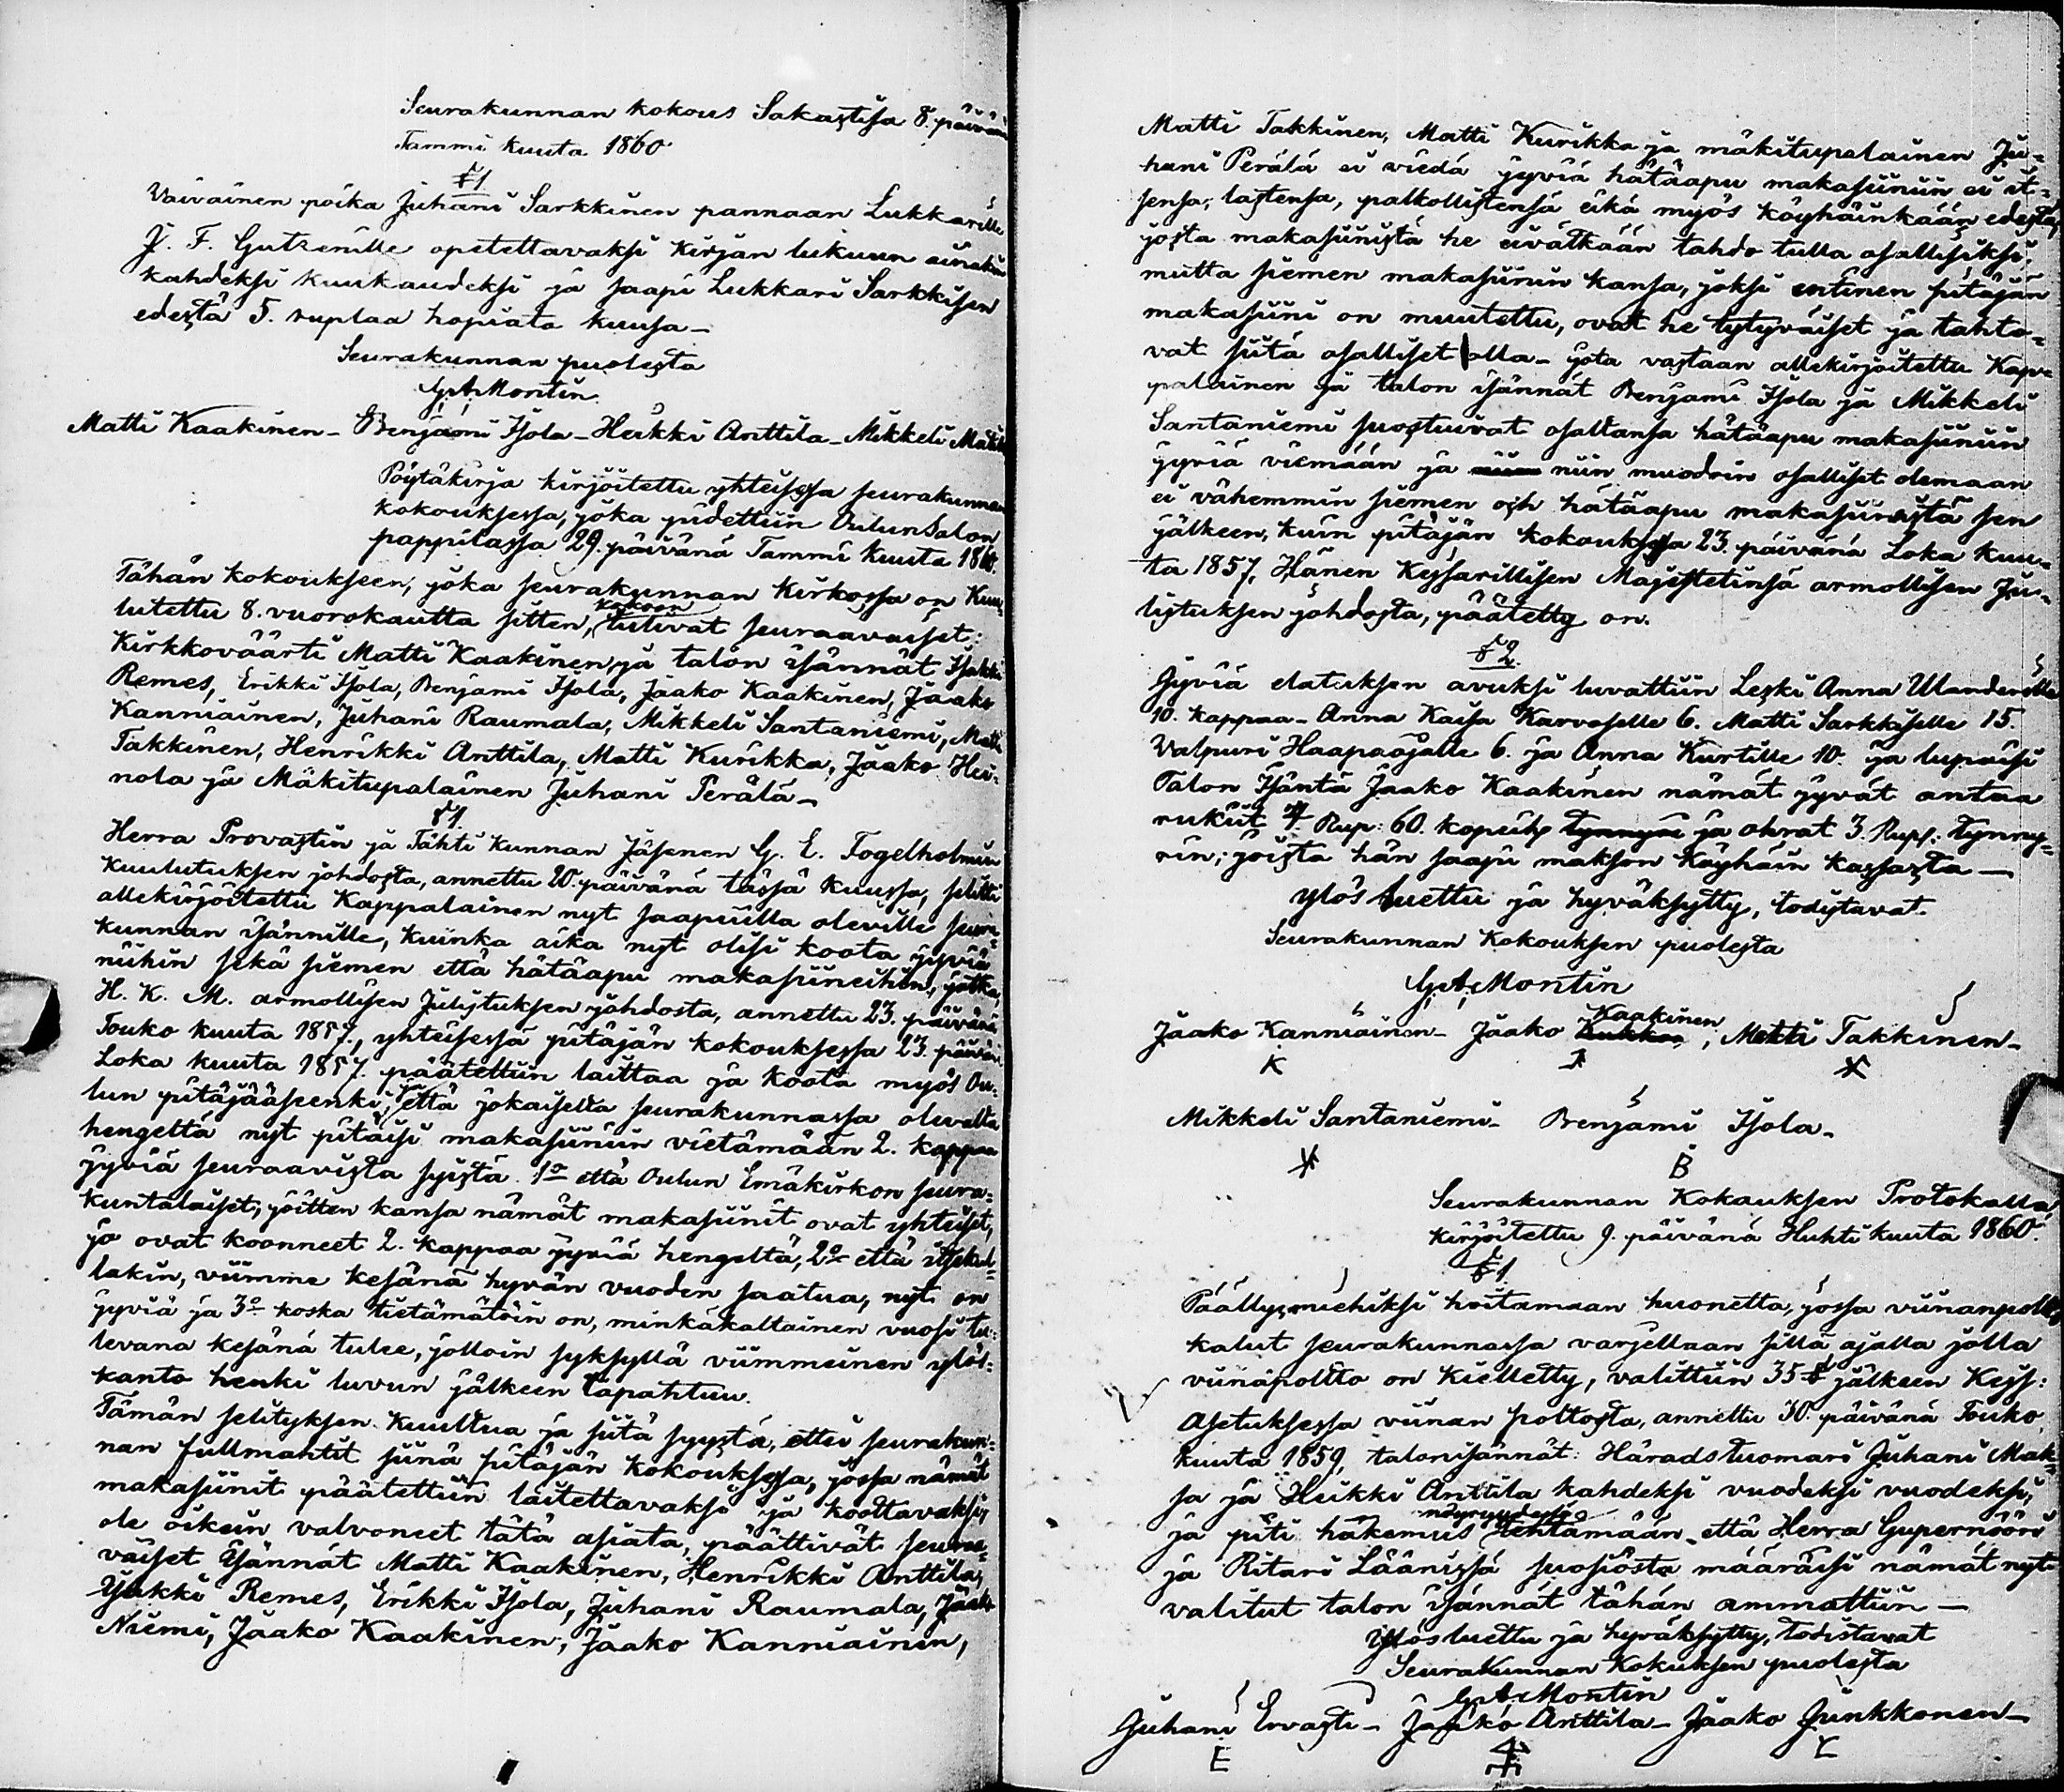 Seurakunnan kokous Sakastisa 8. päivänä
Tammi kuuta 1860
§1
Vaivainen poika Juhani Sarkkinen pannaan Lukkarille
J. F. Gutzenille opetettavaksi kirjan lukuun ainakin
kahdeksi kuukaudeksi ja saapi Lukkari Sarkkisen
edestä 5. ruplaa hopiata kuusa_
Seurakunnan puolesta
G. A. Montin
Matti Kaakinen_ Benjami Isola_ Heikki Anttila_ Mikkeli
Pöytäkirja kirjoitettu yhteisessa seurakunnan
kokouksessa, joka pidettiin Oulunsalon
pappilassa 29. päivänä Tammi kuuta 1860.
Tähän kokoukseen, joka seurakunnan kirkossa on kuu-
lutettu 8. vuorokautta sitten, kokoon tulivat seuraavaiset:
Kirkkoväärti Matti Kaakinen ja talon isännät Isakki
Remes, Erikki Isola, Benjami Isola, Jaako Kaakinen, Jaako
Kanniainen, Juhani Raumala, Mikkeli Santaniemi, Matti
Takkinen, Henrikki Anttila, Matti Kurikka, Jaako Hei-
nola ja Mäkitupalainen Juhani Perälä_
§1.
Herra Provastin ja Tähti kunnan Jäsenen G. E. Fogelholmin
kuulutuksen johdosta, annettu 20. päivänä tässä kuussa, selitti
allekirjoitettu Kappalainen nyt saapuilla oleville seura-
kunnan isännille, kuinka aika nyt olisi koota jyviä
niihin sekä siemen että hätäapu makasiineihin, jotka,
H. K. M. armollisen Julistuksen johdosta, annettu 23. päivänä
Touko kuuta 1857., yhteisessä pitäjän kokouksessa 23. päivän
Loka kuuta 1857. päätettiin laittaa ja koota myös Ou-
lun pitäjääseenki; ja että jokaiselta seurakunnassa olevalta
hengeltä nyt pitäisi makasiiniin vietämään 2. kappaa
jyviä seuraavista syistä. 1o että Oulun Emäkirkon seura-
kuntalaiset, joitten kansa nämät makasiinit ovat yhteiset,
jo ovat koonneet 2. kappaa jyviä hengeltä, 2o että itsekul-
lakin, viimme kesänä hyvän vuoden saatua, nyt on
jyviä ja 3o koska tietämätöin on, minkäkaltainen vuosi tu-
levana kesänä tulee, jolloin syksyllä viimmeinen ylös-
kanto henki luvun jälkeen tapahtuu.
Tämän selityksen kuultua ja siitä syystä, ettei seurakun-
nan fullmahtit siinä pitäjän kokouksessa, jossa nämät
makasiinit päätettiin laitettavaksi ja koottavaksi,
ole oikein valvoneet tätä asiata, päättivät seuraa-
vaiset Isännät Matti Kaakinen, Henrikki Anttila,
Isakki Remes, Erikki Isola, Juhani Raumala, Jaako
Niemi, Jaako Kaakinen, Jaako Kanniainen,
Matti Takkinen, Matti Kurikka ja mäkitupalainen Ju-
hani Perälä ei viedä jyviä hätäapu makasiiniin ei it-
sensä, lastensa, palkollistensa eikä myös köyhäinkään edestä,
josta makasiinistä he eivätkään tahdo tulla osallisiksi;
mutta siemen makasiinin kansa, joksi entinen pitäjän
makasiini on muutettu, ovat he tytyväiset ja tahto-
vat siitä osalliset olla_ jota vastaan allekirjoitettu Kap-
palainen ja talon isännät Benjami Isola ja Mikkeli
Santaniemi suostuivat osaltansa hätäapu makasiiniin
jyviä viemään ja niin muodoin osalliset olemaan
ei vähemmin siemen och hätäapu makasiinistä sen
jälkeen, kuin pitäjän kokouksessa 23. päivänä Loka kuu-
ta 1857, Hänen Keisarillisen Majestetinsä armollisen Ju-
listuksen johdosta, päätetty on.
§2.
Jyviä elatuksen avuksi luvattiin Leski Anna Ulanderille
10. kappaa_ Anna Kaisa Karvoselle 6. Matti Sarkkiselle 15.
Valpuri Haapaojalle 6. ja Anna Kurtille 10. ja lupaisi
Talon Isäntä Jaako Kaakinen nämät jyvät antaa
rukiit 4. Rup: 60. kopeik tynnyri ja ohrat 3. Rupl. tynny-
rin; joista hän saapi makson Köyhäin kassasta_
Ylös luettu ja hyväksytty, todistavat.
Seurakunnan Kokouksen puolesta
G. A. Montin
Jaako Kanniainen_ Jaako Kaakinen, Matti Takkinen_
Mikkeli Santaniemi_ Benjami Isola_
B
Seurakunnan Kokouksen Protokolla
kirjoitettu 9. päivänä Huhti kuuta 1860.
§1.
Päällysmiehiksi hoitamaan huonetta, jossa viinanpoltto
kalut seurakunnassa varjellaan sillä ajalla jolla
viinapoltto on kielletty, valittiin 35 § jälkeen Keis:
Asetuksessa viinan poltosta, annettu 30. päivänä Touko
kuuta 1859, talonisännät: Häradstuomari Juhani Mak-
sa ja Heikki Anttila kahdeksi vuodeksi vuodeksi;
ja piti hakemus nöyryydessä tehtämään, että Herra Gupernööri
ja Ritari Läänissä suosiosta määräisi nämät nyt
valitut talon isännät tähän ammattiin_
Ylös luettu ja hyväksytty, todistavat
Seurakunnan Kokuksen puolesta
G. A. Montin
Juhani Ervasti_ Jaako Anttila_ Jaako Junkkonen_
E